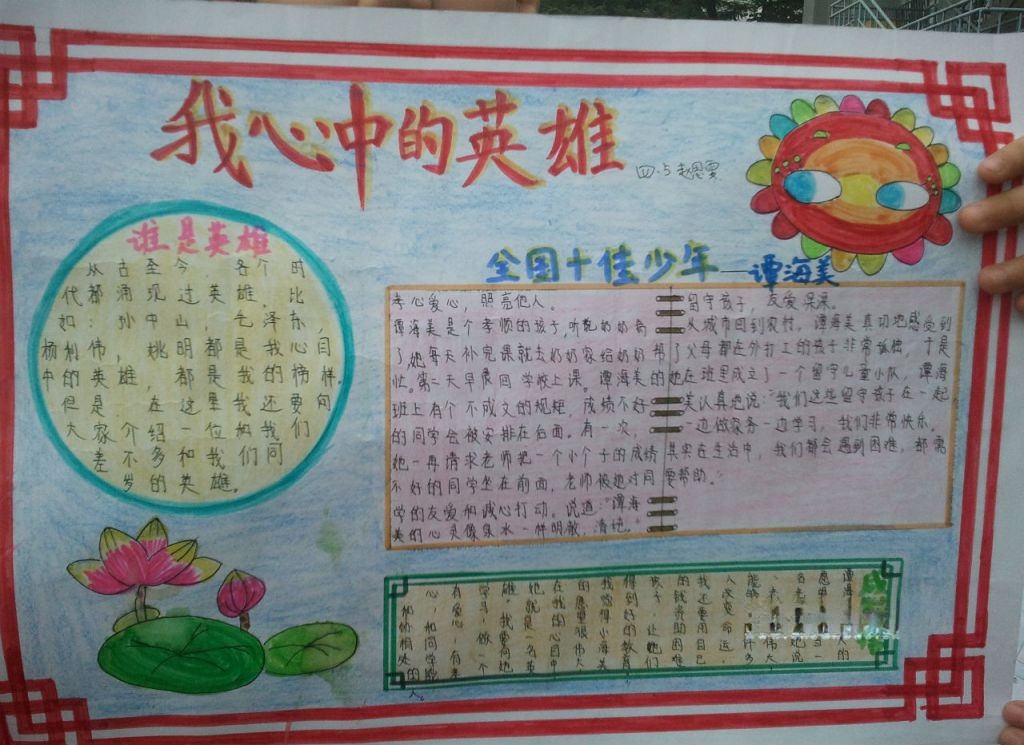 我心中的英雄
四.5 赵恩雯
谁是英雄
从古至今 各个时
代都涌现过英雄，比
如：孙中山，毛泽东，
杨利伟，姚明都是我心目
中的英雄，都是我的榜样。
但是，在这里我还要向
大家介绍一位和我们
差不多和我们同
岁的英雄。
全国十佳少年—谭海美
孝心爱心，照亮他人。
谭海美是个孝顺的孩子，听说奶奶骨
了，她每天补完课就去奶奶家给奶奶帮
忙。第二天早晨回学校上课。谭海美的
班上有个不成文的规矩，成绩不好
的同学会被安排在后面。有一次，
她一再请求老师把一个小个子的成绩
不好的同学坐在前面，老师被她对同
学的友爱和诚心打动。说道："谭海
美的心灵像泉水一样明澈，清纯。"
留守孩子，友爱
从城市回到农村，谭海美真切地感受到
了父母都在外打工的孩子非常孤独，于是
她在班里成立了一个留守儿童小队，谭海
美认真地说："我们这些留守孩子在一起
一边做家务一边学习，我们非常快乐。
其实在生活中，我们都会遇到困难，都需
要帮助。"
谭海
的
愿
名
说
伟大，
能够
人改变命运，
我还要用自己
的钱资助困难
孩子，让她们
得到好的教育，
我觉得小海美
的愿望很伟大
在我的心目中
她就是一名英
雄。我要向她
学习，做一个
有爱心，有孝
心，和同学能
和伙相处的人。